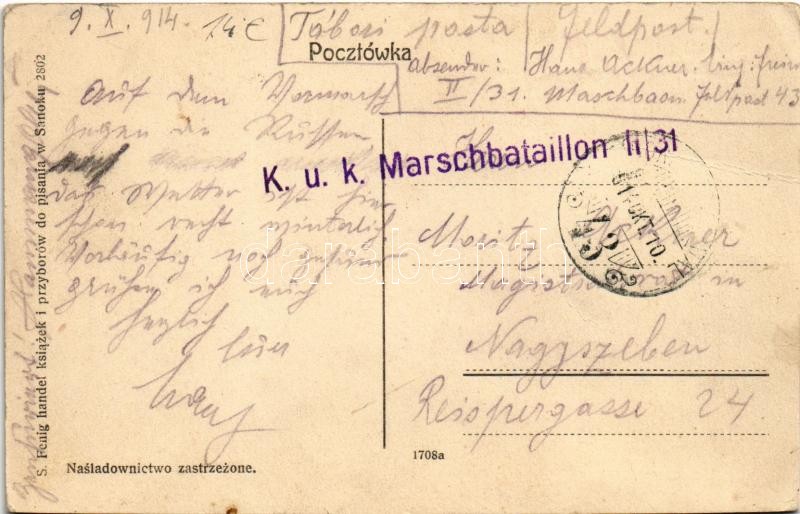 9. X. 914. 14 €
Tábori posta / Feldpost.
Pocztówka
Absender: Hans Ackner.
II/31. Maschbaon. Feldpost 43
Auf dem Vormarsch
gegen die Russen
das Wetter ist hier
schon recht winterlich
Vorläufig noch gesund
grüßen ich euch
herzlich
Euer
Hans
K. u. k. Marschbataillon II/31
43
Moritz Ackner
in
Nagyszeben
Reispergasse 24
S. Fenig handel książek i przyborów do pisania w Sanoku 2802
Naśladownictwo zastrzeżone.
1708a
darabanth